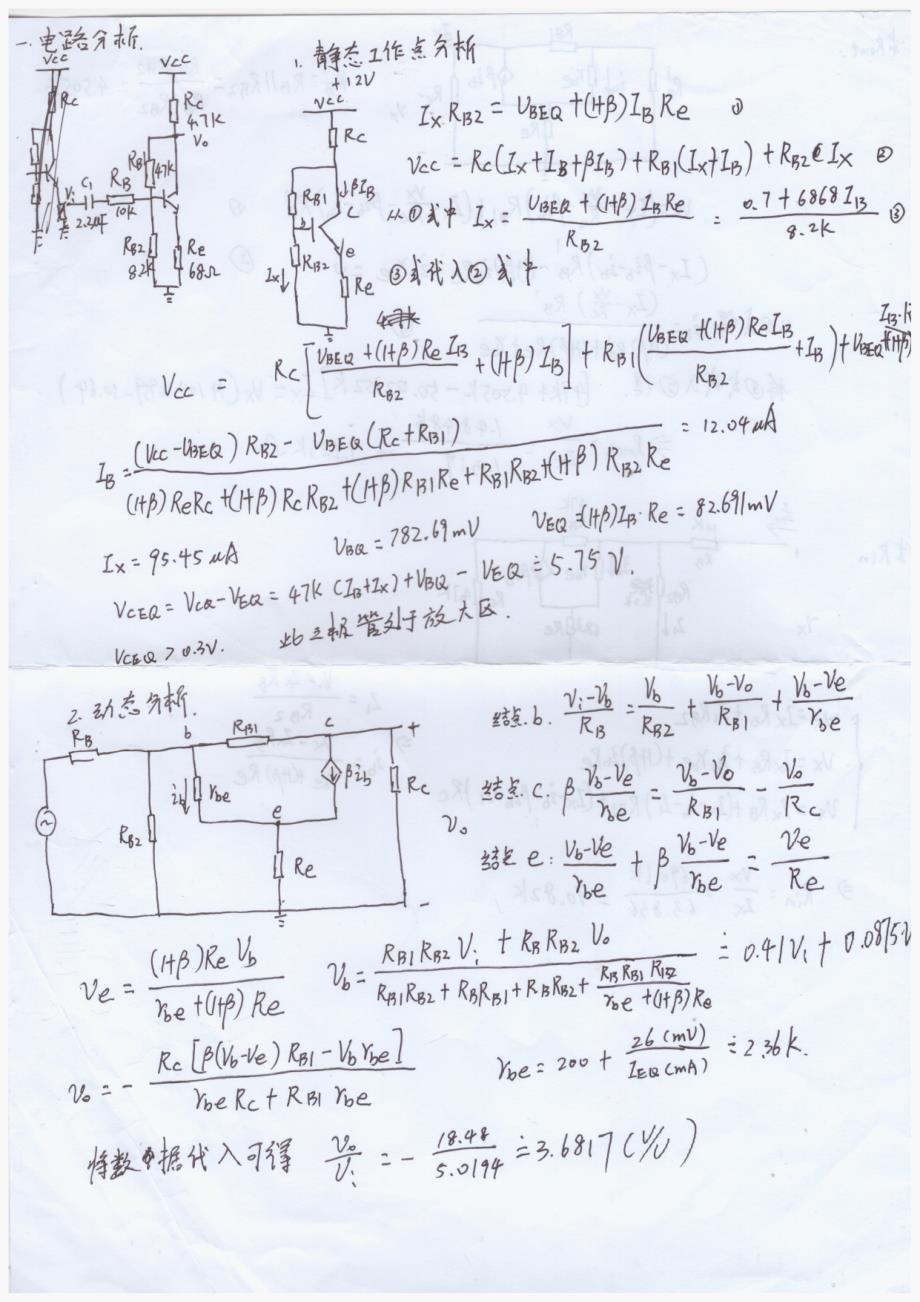 一. 电路分析.
1. 静态工作点分析
VCC
VCC
+12V
VCC
Rc
Rc
4.7K
Vo
RB1
47K
Vi
C1
2.2μF
RB
10K
RB2
8.2K
Re
68Ω
Rc
RB1
↓βIB
c
e
Ix↓
RB2
Re
Ix RB2 = UBEQ + (1+β) IB Re ①
Vcc = Rc(Ix+IB+βIB) + RB1(Ix+IB) + RB2 Ix ②
从①式中 Ix = (UBEQ + (1+β) IB Re) / RB2 = (0.7 + 6868 IB) / 8.2k ③
③式代入②式中
Vcc = Rc[(UBEQ + (1+β) Re IB) / RB2 + (1+β) IB] + RB1((UBEQ + (1+β) Re IB) / RB2 + IB) + UBEQ + (1+β)
IB = ((Vcc - UBEQ) RB2 - UBEQ (Rc + RB1)) / ((1+β) Re Rc + (1+β) Rc RB2 + (1+β) RB1 Re + RB1 RB2 + (1+β) RB2 Re) = 12.04 μA
Ix = 95.45 μA UBQ = 782.69 mV VEQ = (1+β) IB · Re = 82.691 mV
VCEQ = VCQ - VEQ = 47K (IB + Ix) + VBQ - VEQ ≐ 5.75 V.
VCEQ > 0.3V. 此三极管处于放大区.
2. 动态分析.
RB
b
RB1
c
+
ib↓
rbe
βib
Rc
Vo
RB2
e
Re
-
结点b. (Vi - Vb) / RB = Vb / RB2 + (Vb - Vo) / RB1 + (Vb - Ve) / rbe
结点c: β (Vb - Ve) / rbe = (Vb - Vo) / RB1 - Vo / Rc
结点e: (Vb - Ve) / rbe + β (Vb - Ve) / rbe = Ve / Re
Ve = (1+β) Re Vb / (rbe + (1+β) Re)
Vb = (RB1 RB2 Vi + RB RB2 Vo) / (RB1 RB2 + RB RB1 + RB RB2 + RB RB1 RB2 / (rbe + (1+β) Re)) ≐ 0.41 Vi + 0.0875 V
Vo = - Rc [β(Vb - Ve) RB1 - Vb rbe] / (rbe Rc + RB1 rbe)
rbe = 200 + 26 (mV) / IEQ (mA) ≐ 2.36 k.
将数据代入可得 Vo / Vi = - 18.48 / 5.0194 ≐ 3.6817 (V/V)